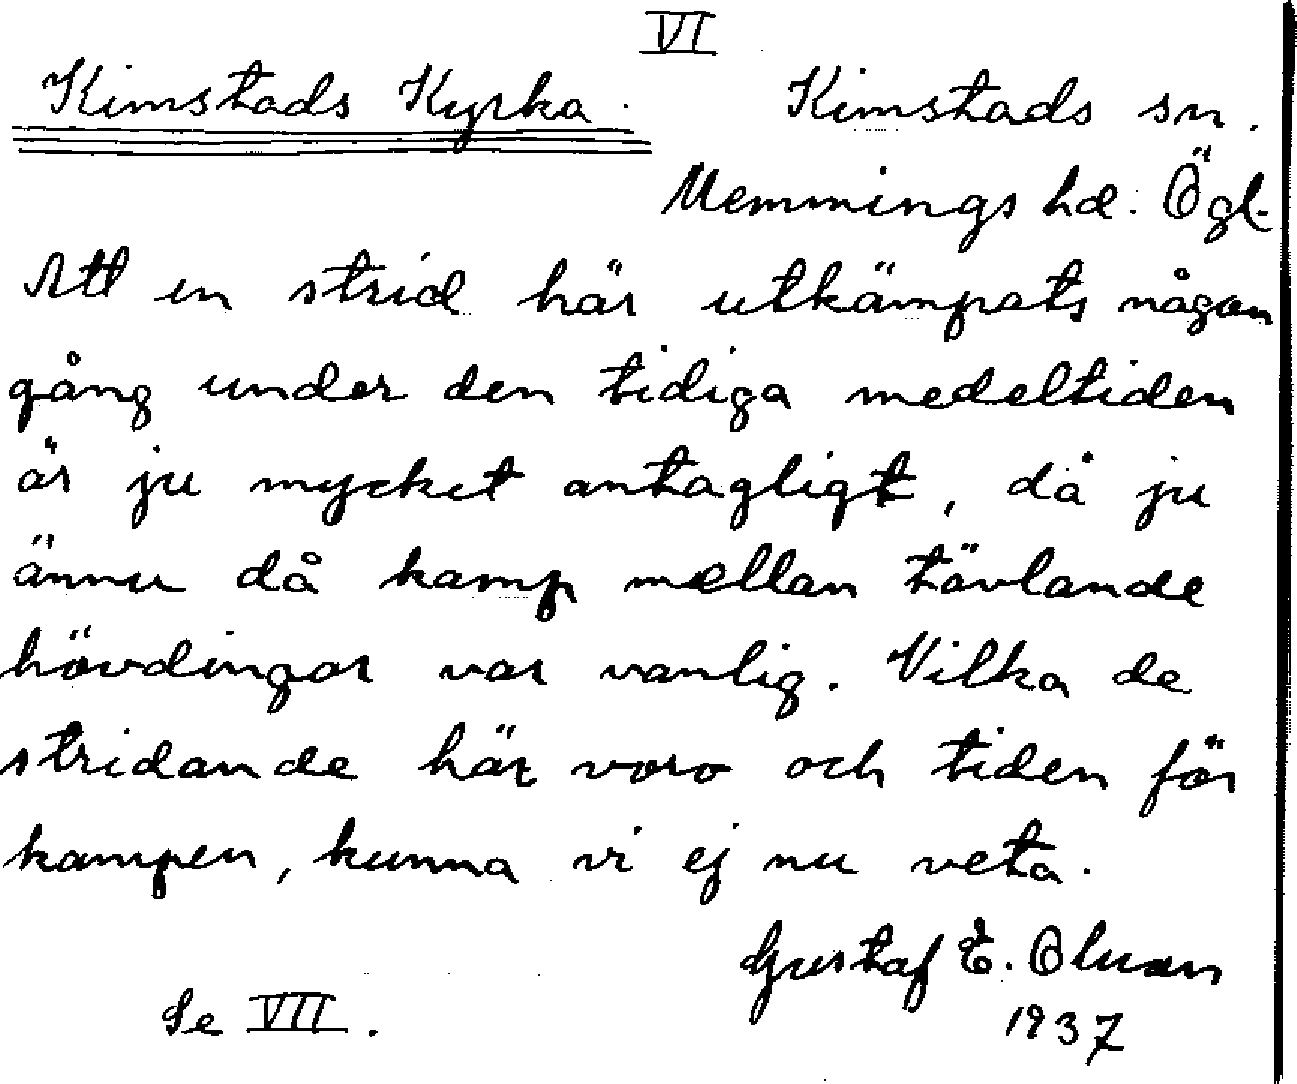 VI
Kimstads Kyrka. Kimstads sn.
Memmings hd. Ögl.
Att en strid här utkämpats någon
gång under den tidiga medeltiden
är ju mycket antagligt, då ju
ännu då kamp mellan tävlande
hövdingar var vanlig. Vilka de
stridande här voro och tiden för
kampen, kunna vi ej nu veta.
Gustaf E.
Se VII. 1937